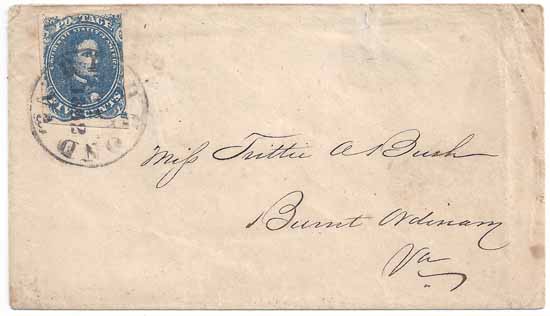 POSTAGE
CONFEDERATE STATES OF AMERICA
FIVE CENTS
OND
VA
Miss Trittie A Bush
Burnt Ordinary
Va